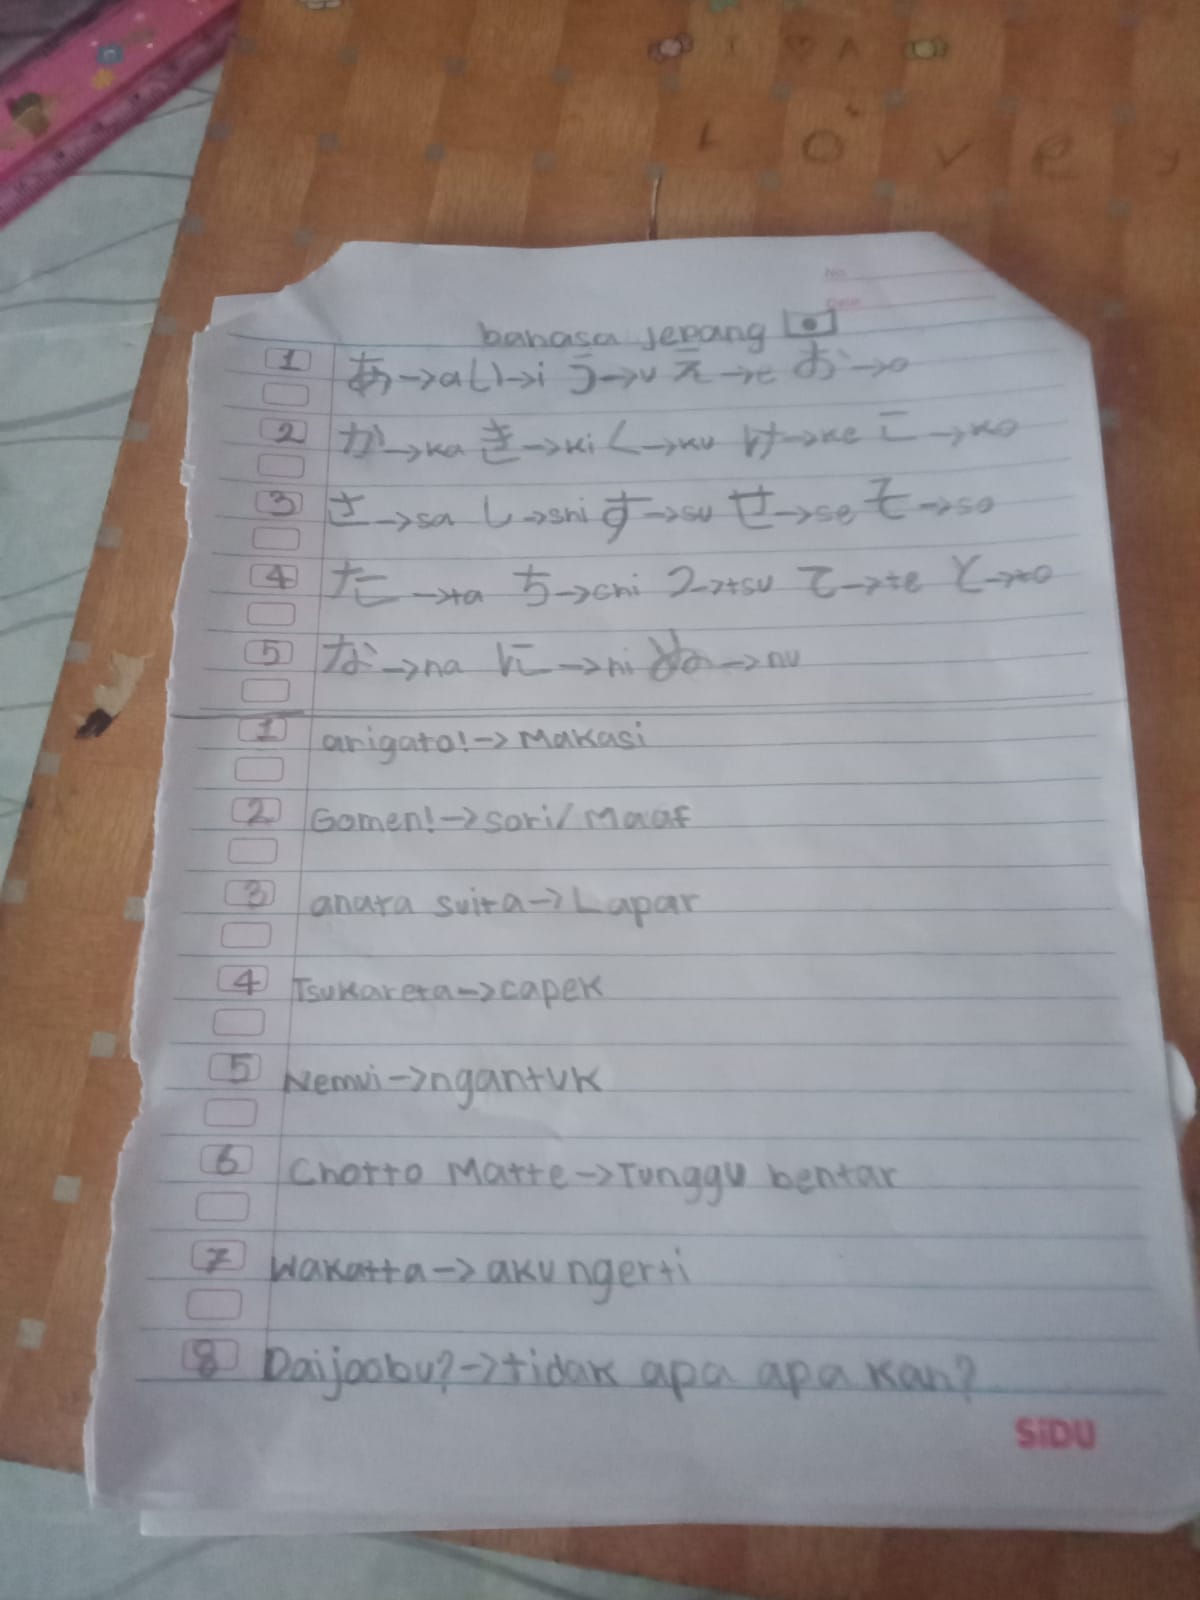 I ♡ A
L O V e y
No.
Date
bahasa jepang
1 あ→a い→i う→u え→e お→o
2 か→ka き→ki く→ku け→ke こ→ko
3 さ→sa し→shi す→su せ→se そ→so
4 た→ta ち→chi つ→tsu て→te と→to
5 な→na に→ni ぬ→nu
1 arigato!→Makasi
2 Gomen!→sori/Maaf
3 anara suita→Lapar
4 Tsukareta→capek
5 Nemui→ngantuk
6 Chotto Matte→Tunggu bentar
7 Wakatta→aku ngerti
8 Daijoobu?→tidak apa apa kan?
SiDU